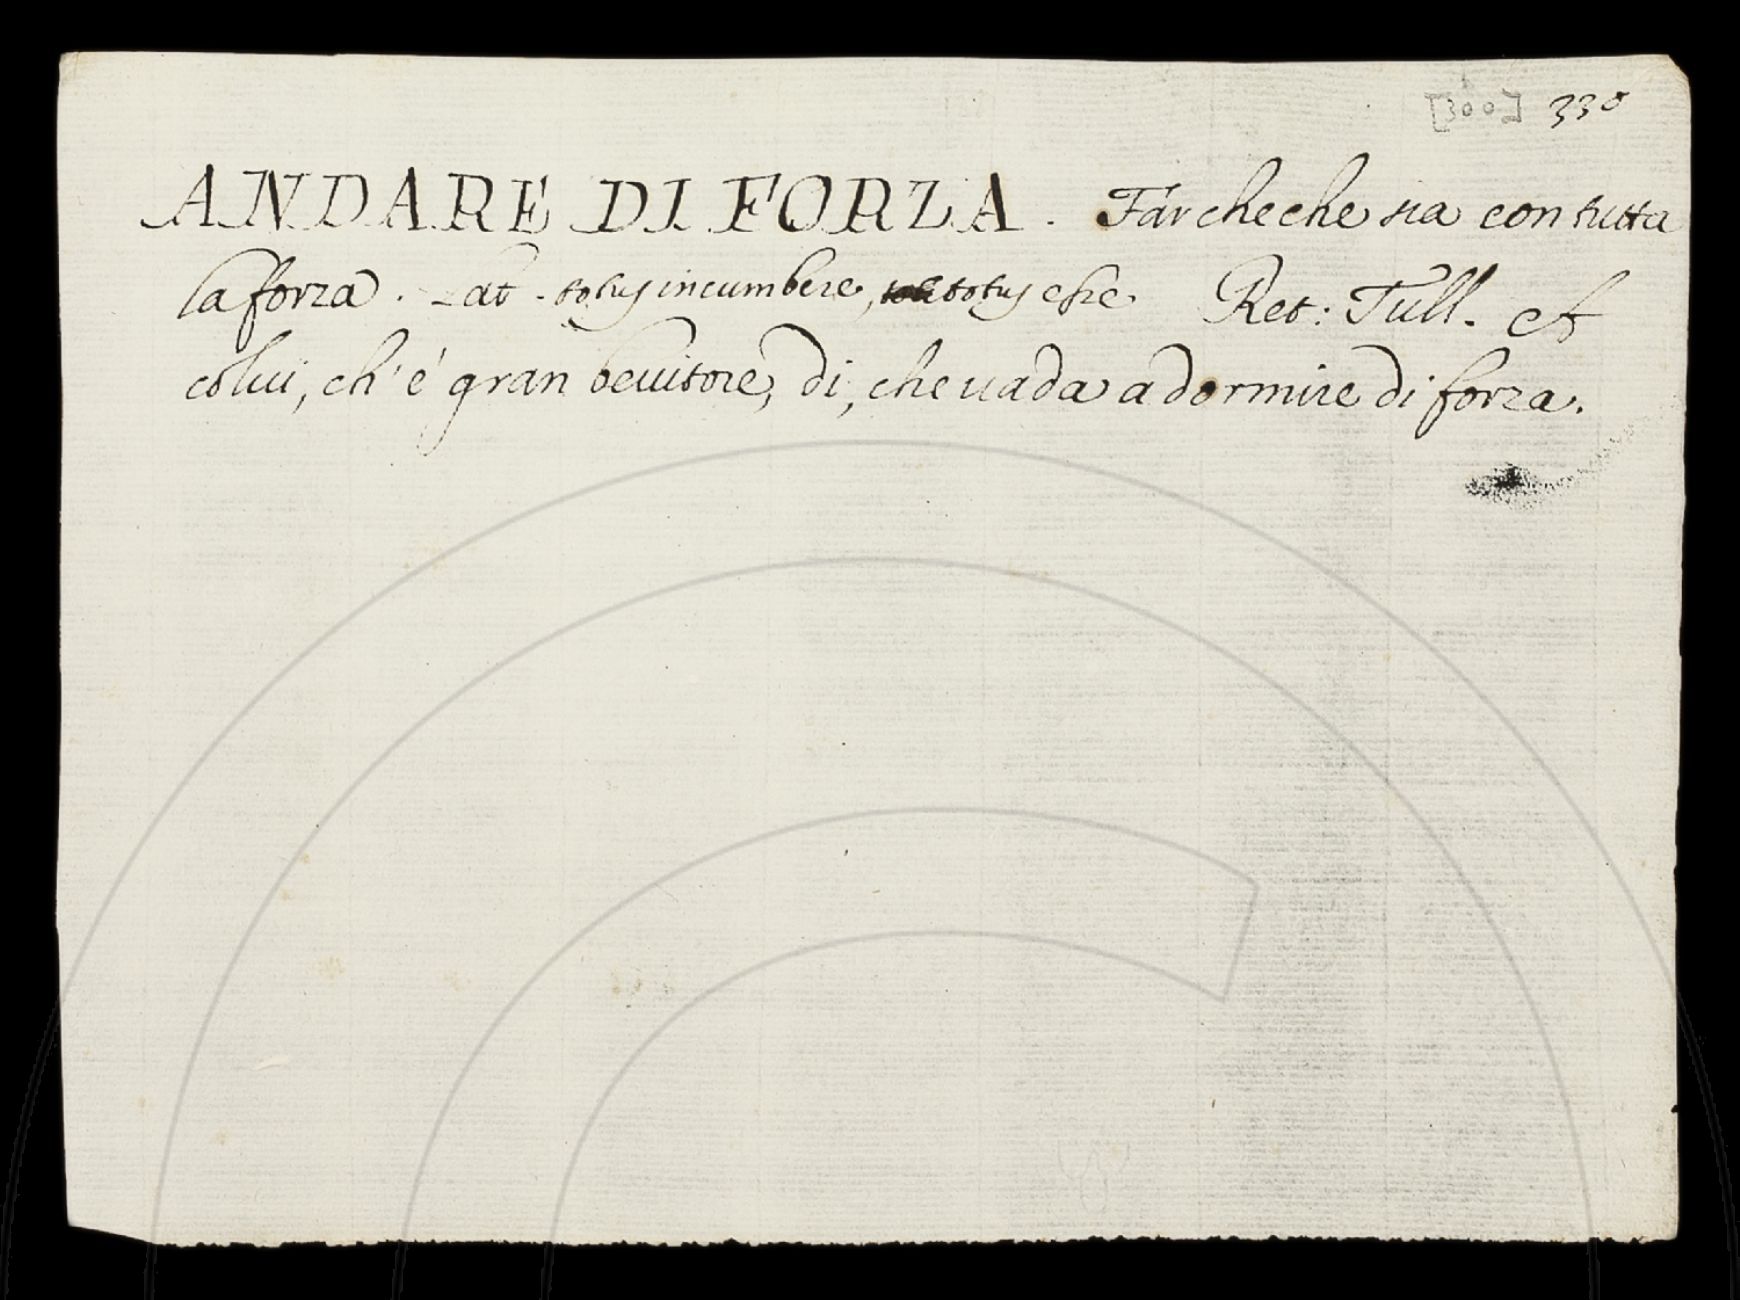 [300] 330
ANDARE DI FORZA. Far cheche sia con tutta
la forza. Lat. totus incumbere, totus esse. Ret: Tull. A
colui, ch' é gran bevitore, di, che uada a dormire di forza.